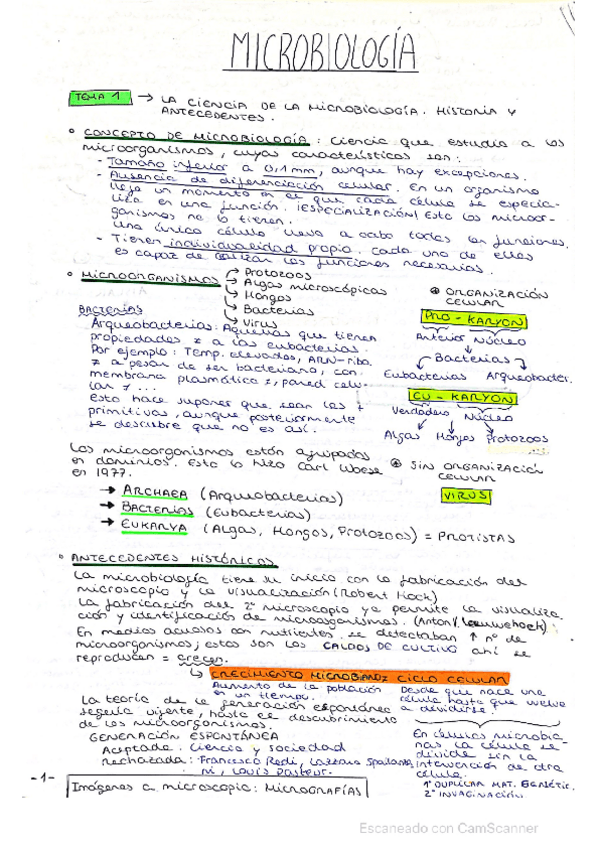 MICROBIOLOGÍA
TEMA 1 → LA CIENCIA DE LA MICROBIOLOGÍA. HISTORIA Y
ANTECEDENTES.
° CONCEPTO DE MICROBIOLOGÍA: Ciencia que estudia a los
microorganismos, cuyas características son:
- Tamaño inferior a 0,1 mm, aunque hay excepciones.
- Ausencia de diferenciación celular. En un organismo
llega un momento en el que cada célula se especia-
liza en una función. ¡ESPECIALIZACIÓN! Esto los microor-
ganismos no lo tienen.
Una única célula lleva a cabo todas las funciones.
- Tienen individualidad propia. Cada uno de ellos
es capaz de realizar las funciones necesarias.
° MICROORGANISMOS
→ Protozoos
→ Algas microscópicas
→ Hongos
→ Bacterias
→ Virus
BACTERIAS
Arqueobacterias: Aquellas que tienen
propiedades ≠ a las eubacterias.
Por ejemplo: Temp. elevadas, ARN-ribo.
≠ a pesar de ser bacteriano, con
membrana plasmática ≠, pared celu-
lar ≠ ...
Esto hace suponer que sean las +
primitivas, aunque posteriormente
se descubre que no es así.
⊛ ORGANIZACIÓN
CELULAR
PRO - KARYON
Anterior Núcleo
Bacterias
Eubacterias Arqueobacter.
EU - KARYON
Verdadero Núcleo
Algas Hongos Protozoos
⊛ SIN ORGANIZACIÓN
CELULAR
VIRUS
Los microorganismos están agrupados
en dominios. Esto lo hizo Carl Woese
en 1977.
→ ARCHAEA (Arqueobacterias)
→ BACTERIAS (Eubacterias)
→ EUKARYA (Algas, Hongos, Protozoos) = PROTISTAS
° ANTECEDENTES HISTÓRICOS
La microbiología tiene su inicio con la fabricación del
microscopio y la visualización (Robert Hock)
La fabricación del 2º microscopio ya permite la visualiza
ción y identificación de microorganismos. (Anton V. Leeuwehock)
En medios acuosos con nutrientes se detectaban ↑ nº de
microorganismos; estos son los CALDOS DE CULTIVO ahí se
reproducen = crecen.
↳ CRECIMIENTO MICROBIANO ≠ CICLO CELULAR
Aumento de la población
en un tiempo.
Desde que nace una
célula hasta que vuelve
a dividirse.
La teoría de la generación espontánea
seguía vigente, hasta el descubrimiento
de los microorganismos.
GENERACIÓN ESPONTÁNEA
Aceptada: Ciencia y sociedad
Rechazada: Francesco Redi, Lazzaro Spallanza
ni, Louis Pasteur.
En células microbia
nas. La célula se
divide sin la
intervención de otra
célula.
1º DUPLICAR MAT. GENÉTIC.
2º INVAGINACIÓN.
-1-
Imágenes a microscopio: MICROGRAFÍAS
Escaneado con CamScanner